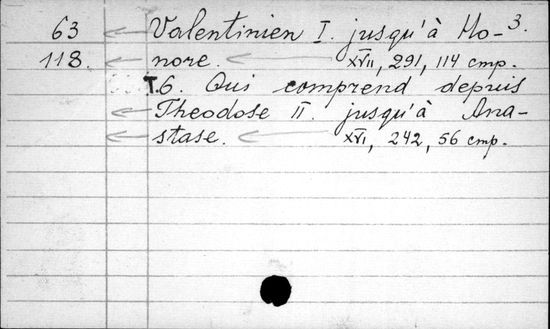 3.
63 Valentinien I. jusqu'à Ho-
118. nore. XVII, 291, 114 cmp.
T.6. Qui comprend depuis
Theodose II. jusqu'à Ana-
stase. XVI, 242, 56 cmp.